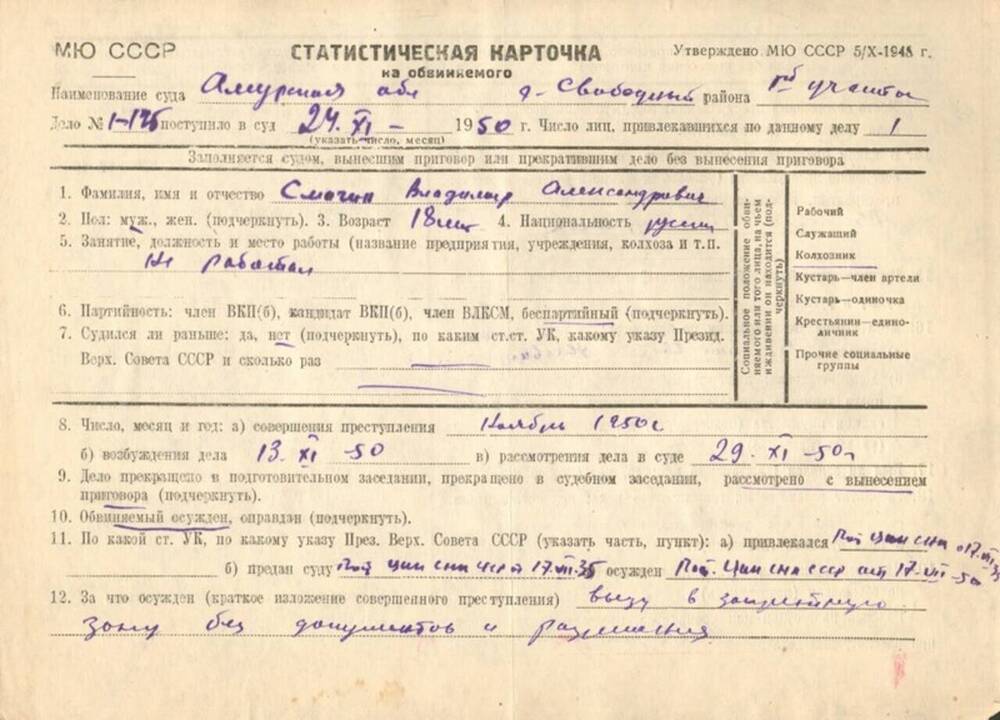 МЮ СССР СТАТИСТИЧЕСКАЯ КАРТОЧКА Утверждено МЮ СССР 5/X-1948 г.
на обвиняемого
Наименование суда Амурская обл г. Свободный района 1го участка
Дело № 1-175 поступило в суд 24. XI – 1950 г. Число лиц, привлекавшихся по данному делу 1
(указать число, месяц)
Заполняется судом, вынесшим приговор или прекратившим дело без вынесения приговора
1. Фамилия, имя и отчество Владимир Александрович
2. Пол: муж., жен. (подчеркнуть). 3. Возраст 18 лет 4. Национальность русский
5. Занятие, должность и место работы (название предприятия, учреждения, колхоза и т.п.
Не работал
6. Партийность: член ВКП(б), кандидат ВКП(б), член ВЛКСМ, беспартийный (подчеркнуть).
7. Судился ли раньше: да, нет (подчеркнуть), по каким ст.ст. УК, какому указу Презид.
Верх. Совета СССР и сколько раз
Социальное положение обви-
няемого или того лица, на чьем
иждивении он находится (под-
черкнуть)
Рабочий
Служащий
Колхозник
Кустарь—член артели
Кустарь—одиночка
Крестьянин—едино-
личник
Прочие социальные
группы
8. Число, месяц и год: а) совершения преступления Ноябрь 1950г
б) возбуждения дела 13. XI -50 в) рассмотрения дела в суде 29. XI -50г
9. Дело прекращено в подготовительном заседании, прекращено в судебном заседании, рассмотрено с вынесением
приговора (подчеркнуть).
10. Обвиняемый осужден, оправдан (подчеркнуть).
11. По какой ст. УК, по какому указу През. Верх. Совета СССР (указать часть, пункт): а) привлекался Пост ЦИК СНК от 17.VII 35
б) предан суду Пост ЦИК СНК СССР от 17.VII.35 осужден Пост. ЦИК СНК СССР от 17-VII -50
12. За что осужден (краткое изложение совершенного преступления) въезд в запретную
зону без документов и разрешения